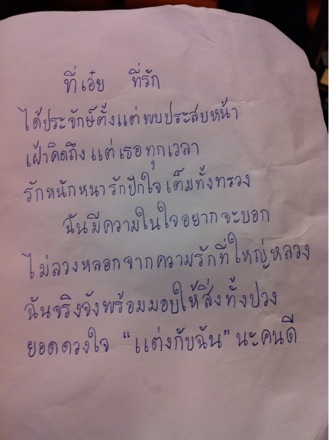 ที่เอ๋ย ที่รัก
ได้ประจักษ์ตั้งแต่พบประสบหน้า
เฝ้าคิดถึงแต่เธอทุกเวลา
รักหนักหนารักปักใจเต็มทั้งทรวง
ฉันมีความในใจอยากจะบอก
ไม่ลวงหลอกจากความรักที่ใหญ่หลวง
ฉันจริงจังพร้อมมอบให้สิ่งทั้งปวง
ยอดดวงใจ "แต่งกับฉัน" นะคนดี